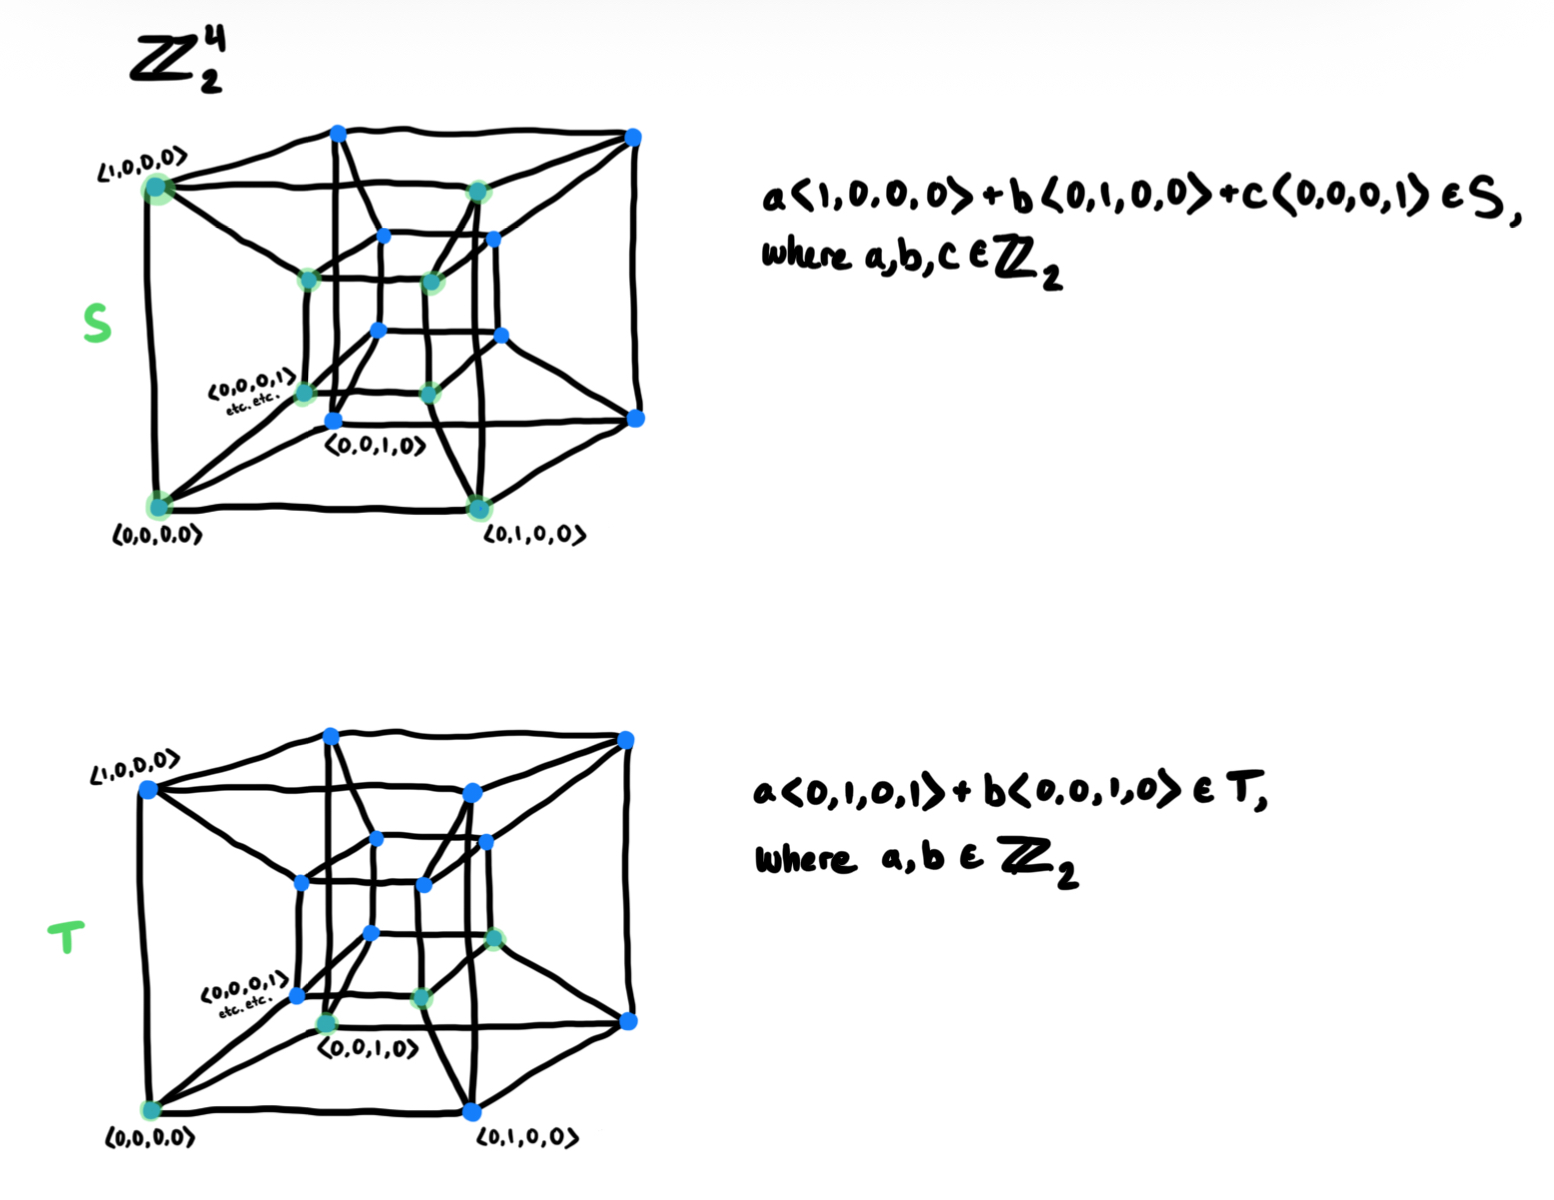 ℤ₂⁴
<1,0,0,0>
S
<0,0,0,1>
etc. etc.
<0,0,1,0>
<0,0,0,0>
<0,1,0,0>
a<1,0,0,0> + b<0,1,0,0> + c<0,0,0,1> ∈ S,
where a,b,c ∈ ℤ₂
<1,0,0,0>
T
<0,0,0,1>
etc. etc.
<0,0,1,0>
<0,0,0,0>
<0,1,0,0>
a<0,1,0,1> + b<0,0,1,0> ∈ T,
where a,b ∈ ℤ₂